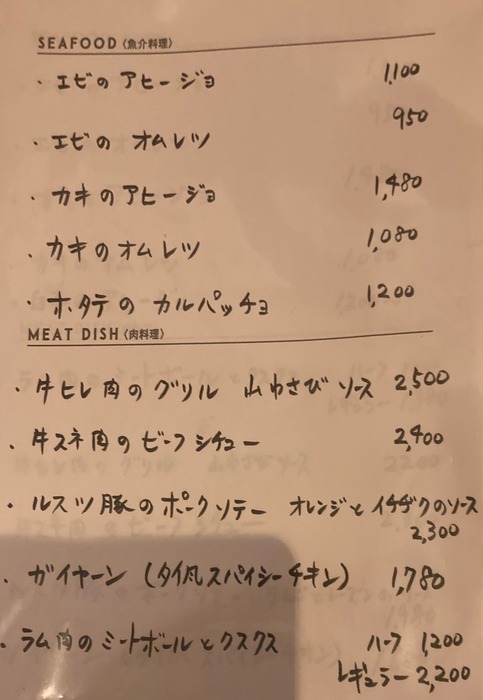 SEAFOOD〈魚介料理〉
・エビのアヒージョ 1,100
・エビのオムレツ 950
・カキのアヒージョ 1,480
・カキのオムレツ 1,080
・ホタテのカルパッチョ 1,200
MEAT DISH〈肉料理〉
・牛ヒレ肉のグリル 山わさびソース 2,500
・牛スネ肉のビーフシチュー 2,400
・ルスツ豚のポークソテー オレンジとイチヂクのソース
2,300
・ガイヤーン(タイ風スパイシーチキン) 1,780
・ラム肉のミートボールとクスクス ハーフ 1,200
レギュラー 2,200